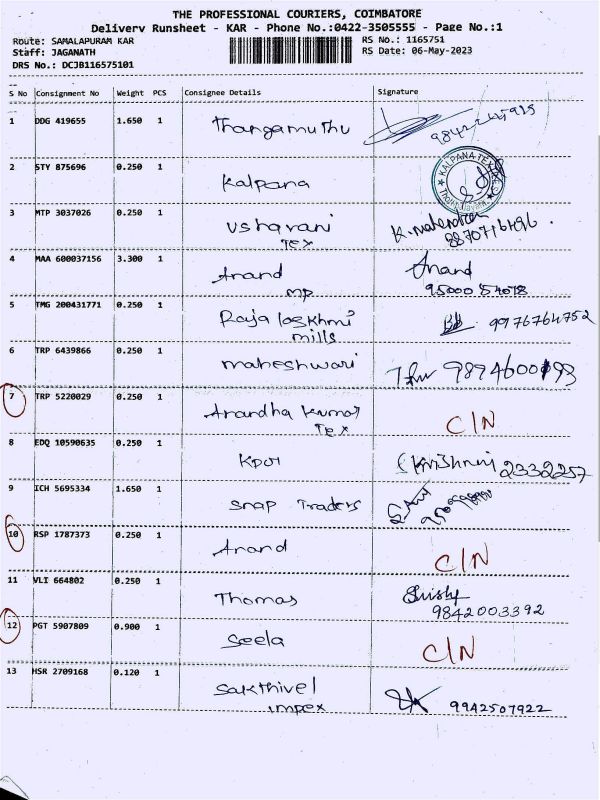 THE PROFESSIONAL COURIERS, COIMBATORE
Delivery Runsheet - KAR - Phone No.:0422-3505555 - Page No.:1
Route: SAMALAPURAM KAR
RS No.: 1165751
Staff: JAGANATH
RS Date: 06-May-2023
DRS No.: DCJB116575101
S No Consignment No Weight PCS Consignee Details Signature
1 DDG 419655 1.650 1 Thangamuthu
2 STY 875696 0.250 1 Kalpana KALPANA TEX
3 MTP 3037026 0.250 1 Usharani K. Mahendran
Tex
4 MAA 600037156 3.300 1 Anand Anand
mp 95000 54078
5 TMG 200431771 0.250 1 Raja laskhmi 9976764752
mills
6 TRP 6439866 0.250 1 maheshwari
7 TRP 5220029 0.250 1 Anandha kumar C/N
Tex
8 EDQ 10590635 0.250 1 Kpor 2332257
9 ICH 5695334 1.650 1 Snap Traders
10 RSP 1787373 0.250 1 Anand C/N
11 VLI 664802 0.250 1 Thomas
9842003392
12 PGT 5907809 0.900 1 Seela C/N
13 HSR 2709168 0.120 1 Sakthivel 9942507922
impex